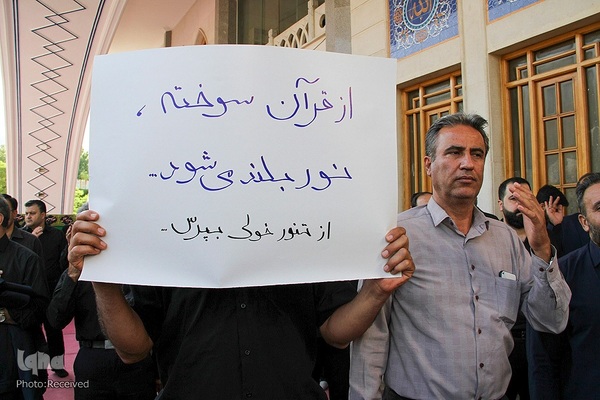 از قرآن سوخته،
نور بلند می‌شود..
از تنور خولی بپرس..
الله
iqna
Photo:Received